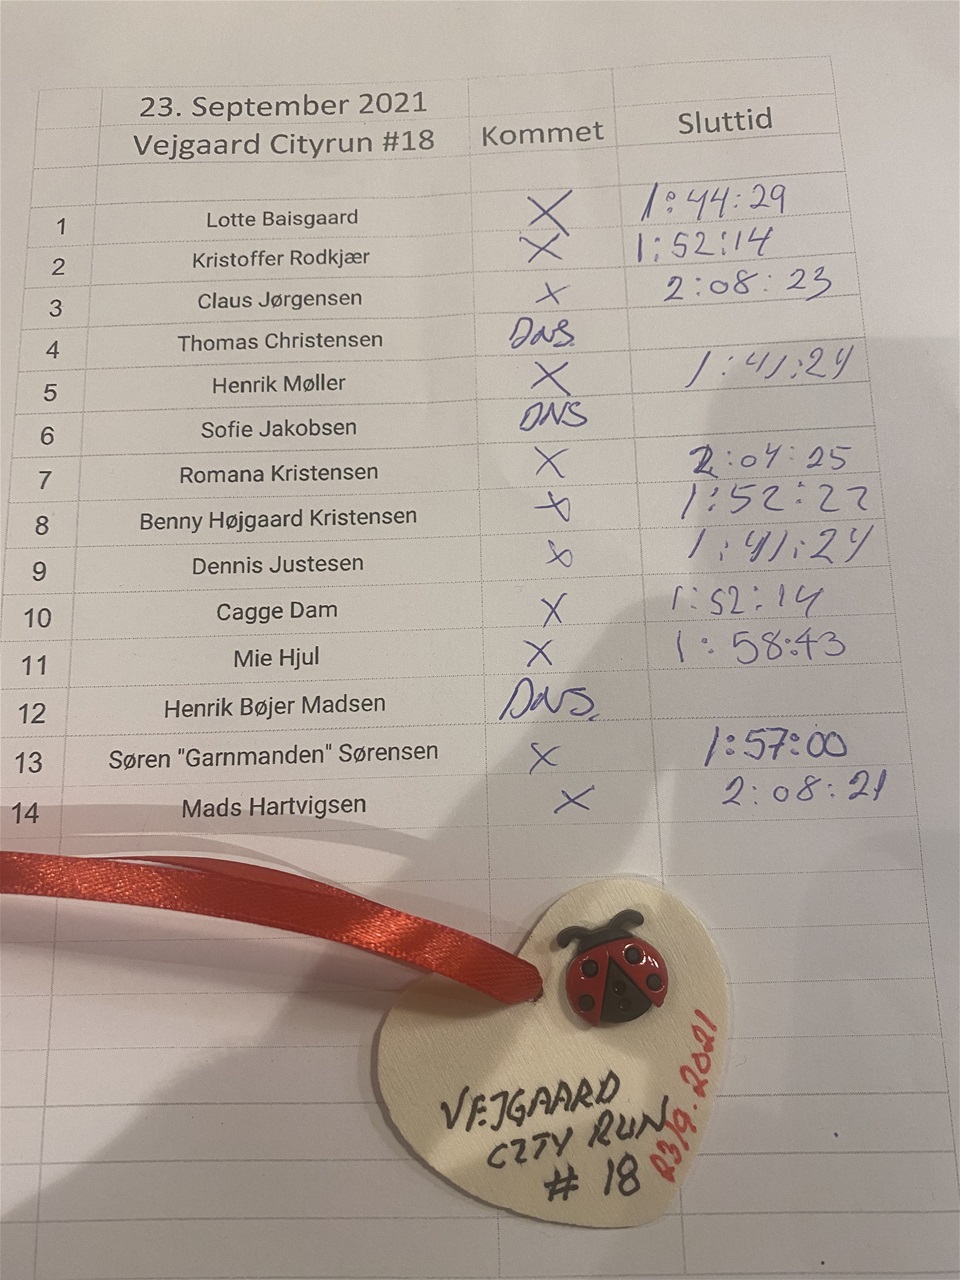 23. September 2021
Vejgaard Cityrun #18 Kommet Sluttid
1 Lotte Baisgaard X 1:44:29
2 Kristoffer Rodkjær X 1:52:14
3 Claus Jørgensen X 2:08:23
4 Thomas Christensen DNS.
5 Henrik Møller X 1:41:24
6 Sofie Jakobsen DNS
7 Romana Kristensen X 2:04:25
8 Benny Højgaard Kristensen X 1:52:22
9 Dennis Justesen X 1:41:24
10 Cagge Dam X 1:52:14
11 Mie Hjul X 1:58:43
12 Henrik Bøjer Madsen DNS.
13 Søren "Garnmanden" Sørensen X 1:57:00
14 Mads Hartvigsen X 2:08:21
VEJGAARD
CITY RUN
# 18
23/9-2021